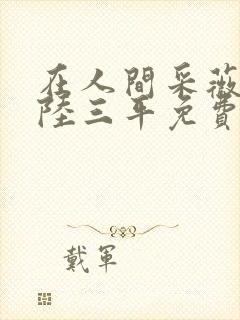 在人間采薇
陸三年免費
戴軍